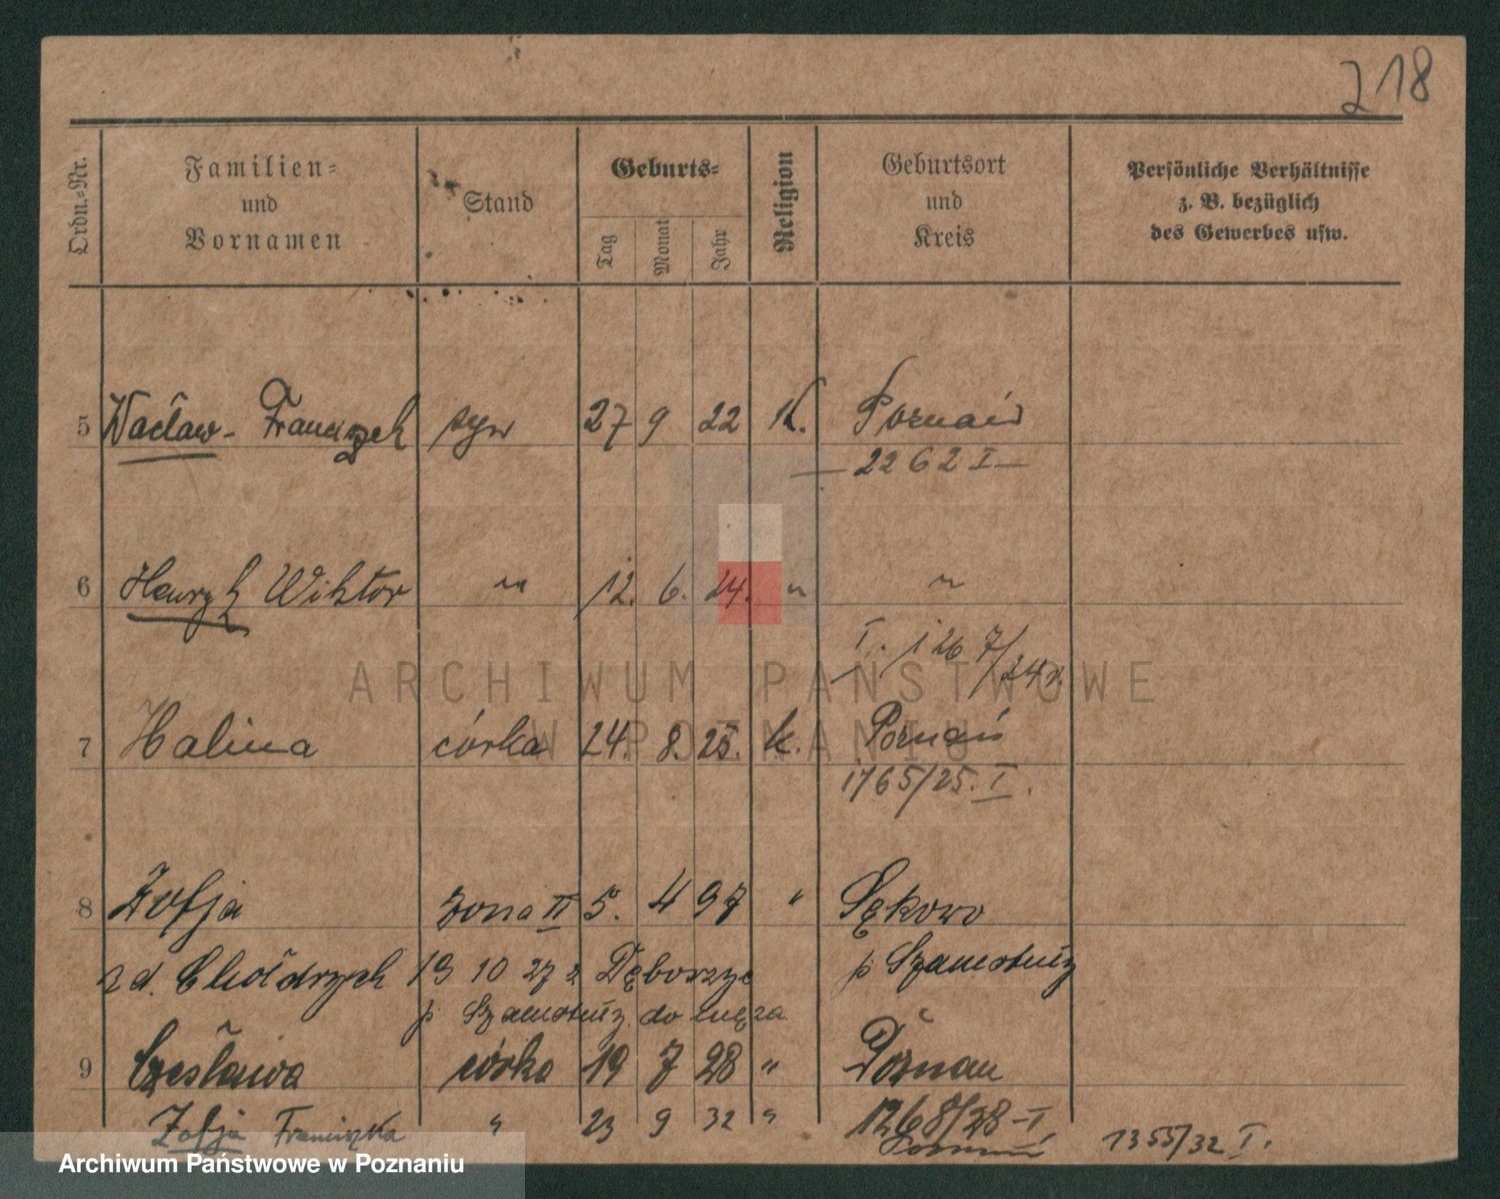 218
Ordn.-Nr.
Familien-
und
Vornamen
Stand
Geburts-
Tag
Monat
Jahr
Religion
Geburtsort
und
Kreis
Persönliche Verhältnisse
z. B. bezüglich
des Gewerbes usw.
5 Wacław - Franciszek syn 27 9 22 K. Poznań
2262 I
6 Henryk Wiktor " 12. 6. 24. " "
I. 1267/24 r.
ARCHIWUM PAŃSTWOWE
W POZNANIU
7 Halina córka 24. 8. 25. k. Poznań
1765/25. I.
8 Zofja żona II 5. 4 97 " Sękowo
z d. 19 10 27 z p Szamotuły
p Szamotuły do męża
9 Czesława córka 19 7 28 " Poznań
1268/28 - I
Zofja Franciszka " 23 9 32 " Poznań 1355/32 I.
Archiwum Państwowe w Poznaniu